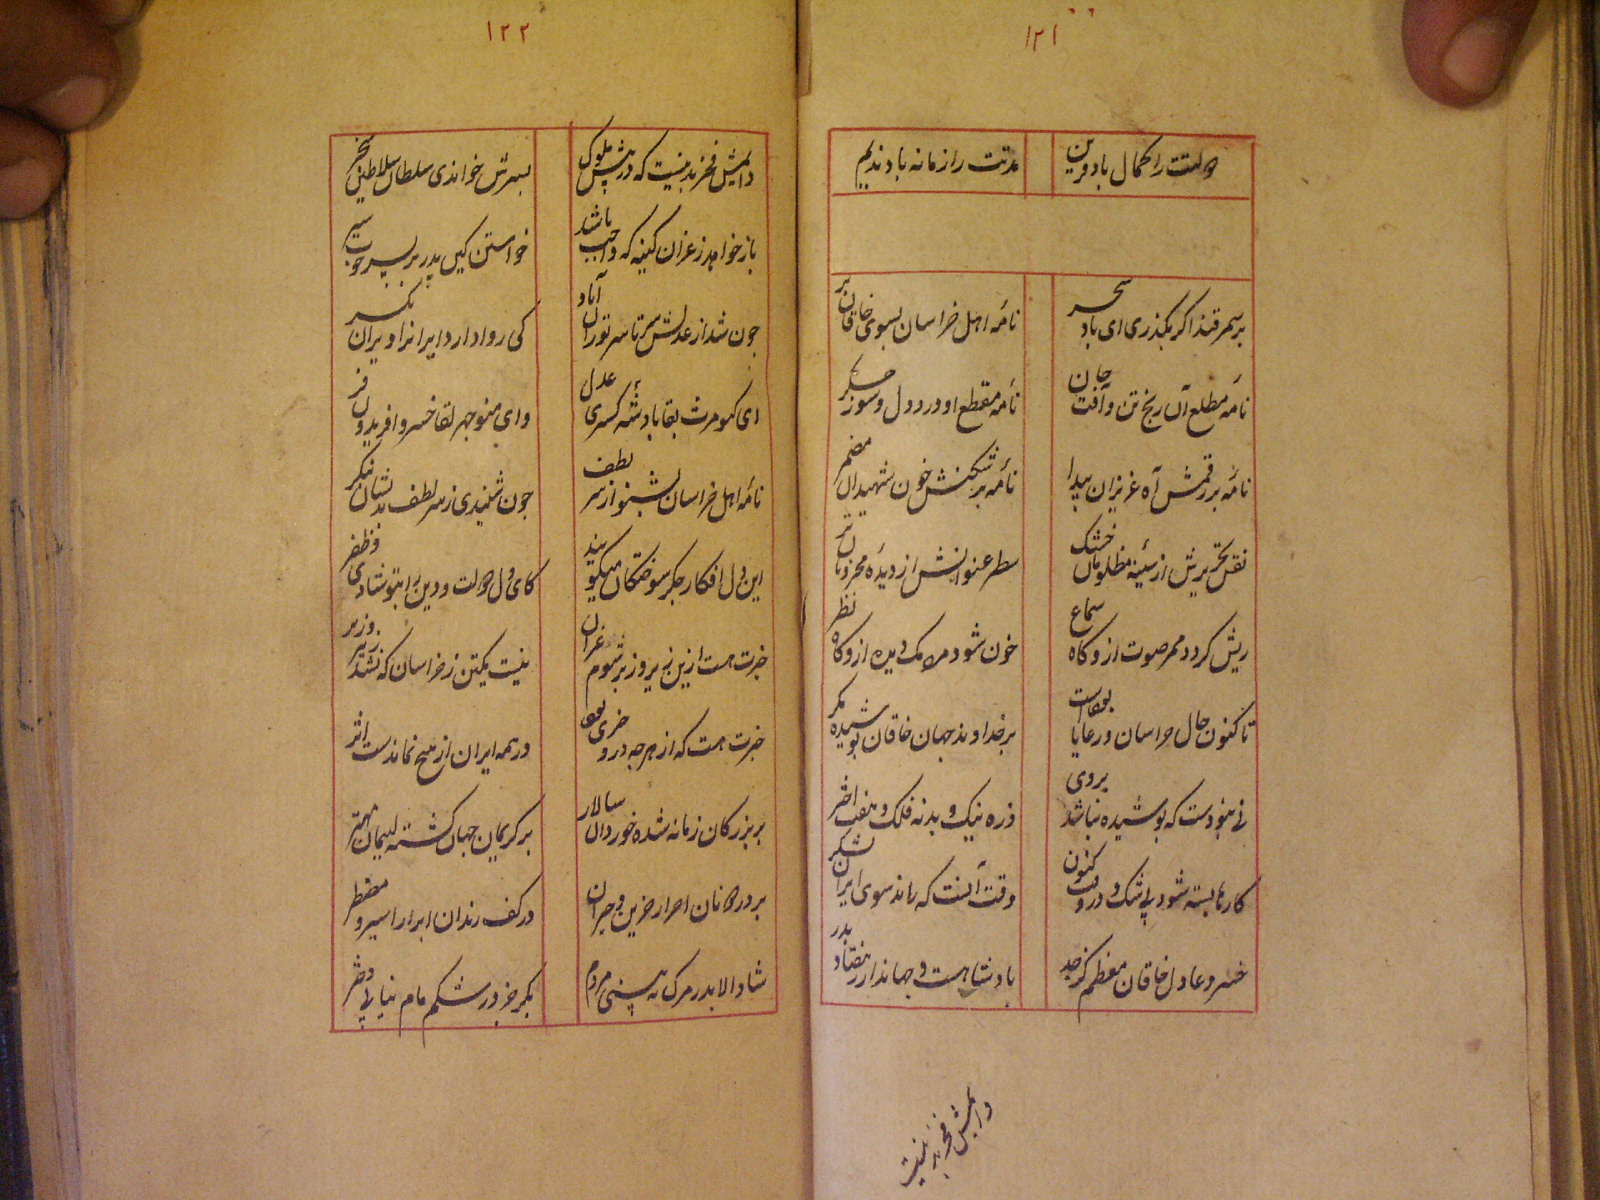 ۱۲۱
دولتت را کمال باد قرین
مدتت را زمانه باد ندیم
بر سمرقند اکر بکذری ای باد سحر
نامهٔ اهل خراسان بسوی خاقان بر
نامهٔ مطلع آن رنج تن و آفت جان
نامهٔ مقطع او درد دل و سوز جکر
نامهٔ بر رقمش آه عزیزان پیدا
نامهٔ بر شکنش خون شهیدان مضمر
نقش تحریرش از سینهٔ مظلومان خشک
سطر عنوانش از دیدهٔ محرومان تر
ریش کردد ممر صوت ازو کاه سماع
خون شود مردمک دیده ازو کاه نظر
تا کنون حال خراسان و رعایا بودست
بر خداوند جهان خاقان پوشیده مکر
نی نبودست که پوشیده نباشد بروی
ذره نیک و بد نه فلک و هفت اختر
کارها بسته شود بی شک و در وقت کنون
وقت آنست که راند سوی ایران لشکر
خسرو عادل خاقان معظم کز جد
پادشاهست و جهاندار بهفتاد پدر
دایمش فخر بدینست
۱۲۲
دایمش فخر بدینست که در پیش ملوک
پسرش خواندی سلطان سلاطین سنجر
باز خواهد ز غزان کینه که واجب باشد
خواستن کین پدر بر پسر خوب سیر
چون شد از عدلش سرتاسر توران آباد
کی روا دارد ایران را ویران یکسر
ای کیومرث بقا پادشه کسری عدل
وای منوچهر لقا خسرو افریدون فر
نامهٔ اهل خراسان بشنو از سر لطف
چون شنیدی ز سر لطف بدیشان بنکر
این دل افکار جکر سوختکان میکویند
کای دل و دولت و دین را بتو شادی و ظفر
خبرت هست ازین زیر و زبر شوم غزان
نیست یکتن ز خراسان که نشد زیر و زبر
خبرت هست که از هر چه درو خیری بود
در همه ایران از هیچ نماندست اثر
بر بزرکان زمانه شده خوردان سالار
بر کریمان جهان کشته لئیمان مهتر
بر در دونان احرار حزین و حیران
در کف رندان ابرار اسیر و مضطر
شاد الا بدر مرک نه بینی مردم
بکر جز در شکم مام نیابی دختر